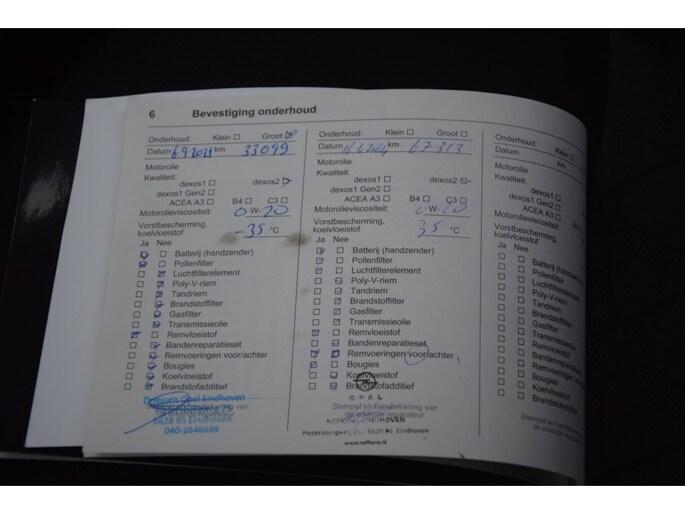 6 Bevestiging onderhoud
Onderhoud: Klein ☐ Groot ☑
Datum 6 9 2021 km 33099
Motorolie
Kwaliteit:
dexos1 ☐ dexos2 ☑
dexos1 Gen2 ☐
ACEA A3 ☐ B4 ☐ C3 ☐
Motorolieviscositeit: 0 W- 20
Vorstbescherming,
koelvloeistof -35 °C
Ja Nee
Batterij (handzender)
Pollenfilter
Luchtfilterelement
Poly-V-riem
Tandriem
Brandstoffilter
Gasfilter
Transmissieolie
Remvloeistof
Bandenreparatieset
Remvoeringen voor/achter
Bougies
Koelvloeistof
Brandstofadditief
Driessen Opel Eindhoven
5628 BS Eindhoven
040-2646699
Onderhoud: Klein ☐ Groot ☐
Datum km 67313
Motorolie
Kwaliteit:
dexos1 ☐ dexos2 ☑
dexos1 Gen2 ☐
ACEA A3 ☐ B4 ☐ C3 ☐
Motorolieviscositeit: W-
Vorstbescherming,
koelvloeistof 35 °C
Ja Nee
Batterij (handzender)
Pollenfilter
Luchtfilterelement
Poly-V-riem
Tandriem
Brandstoffilter
Gasfilter
Transmissieolie
Remvloeistof
Bandenreparatieset
Remvoeringen voor/achter
Bougies
Koelvloeistof
Brandstofadditief
OPEL
Stempel en handtekening van
de erkende reparateur
EINDHOVEN
Pietersbergweg 25 - 5628 BS Eindhoven
www.nefkens.nl
Onderhoud:
Datum km
Motorolie
Kwaliteit:
dexos1 ☐
dexos1 Gen2 ☐
ACEA A3 ☐
Motorolieviscositeit:
Vorstbescherming,
koelvloeistof
Ja Nee
Batterij (handzender)
Pollenfilter
Luchtfilterelement
Poly-V-riem
Tandriem
Brandstoffilter
Gasfilter
Transmissieolie
Remvloeistof
Bandenreparatieset
Remvoeringen
Bougies
Koelvloeistof
Brandstofadditief
Stempel en
de erkende